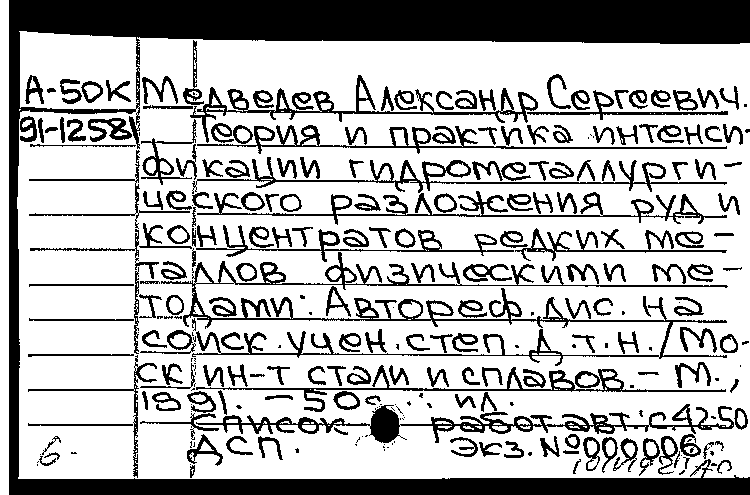 А-50К Медведев Александр Сергеевич.
91-12581 Теория и практика интенси-
фикации гидрометаллурги-
ческого разложения руд и
концентратов редких ме-
таллов физическими ме-
тодами: Автореф. дис. на
соиск. учен. степ. д.т.н. / Мо-
ск ин-т стали и сплавов. - М.,
1991. - 50с. : ил.
Список работ авт.: с.42-50
6. ДСП. Экз. №000006